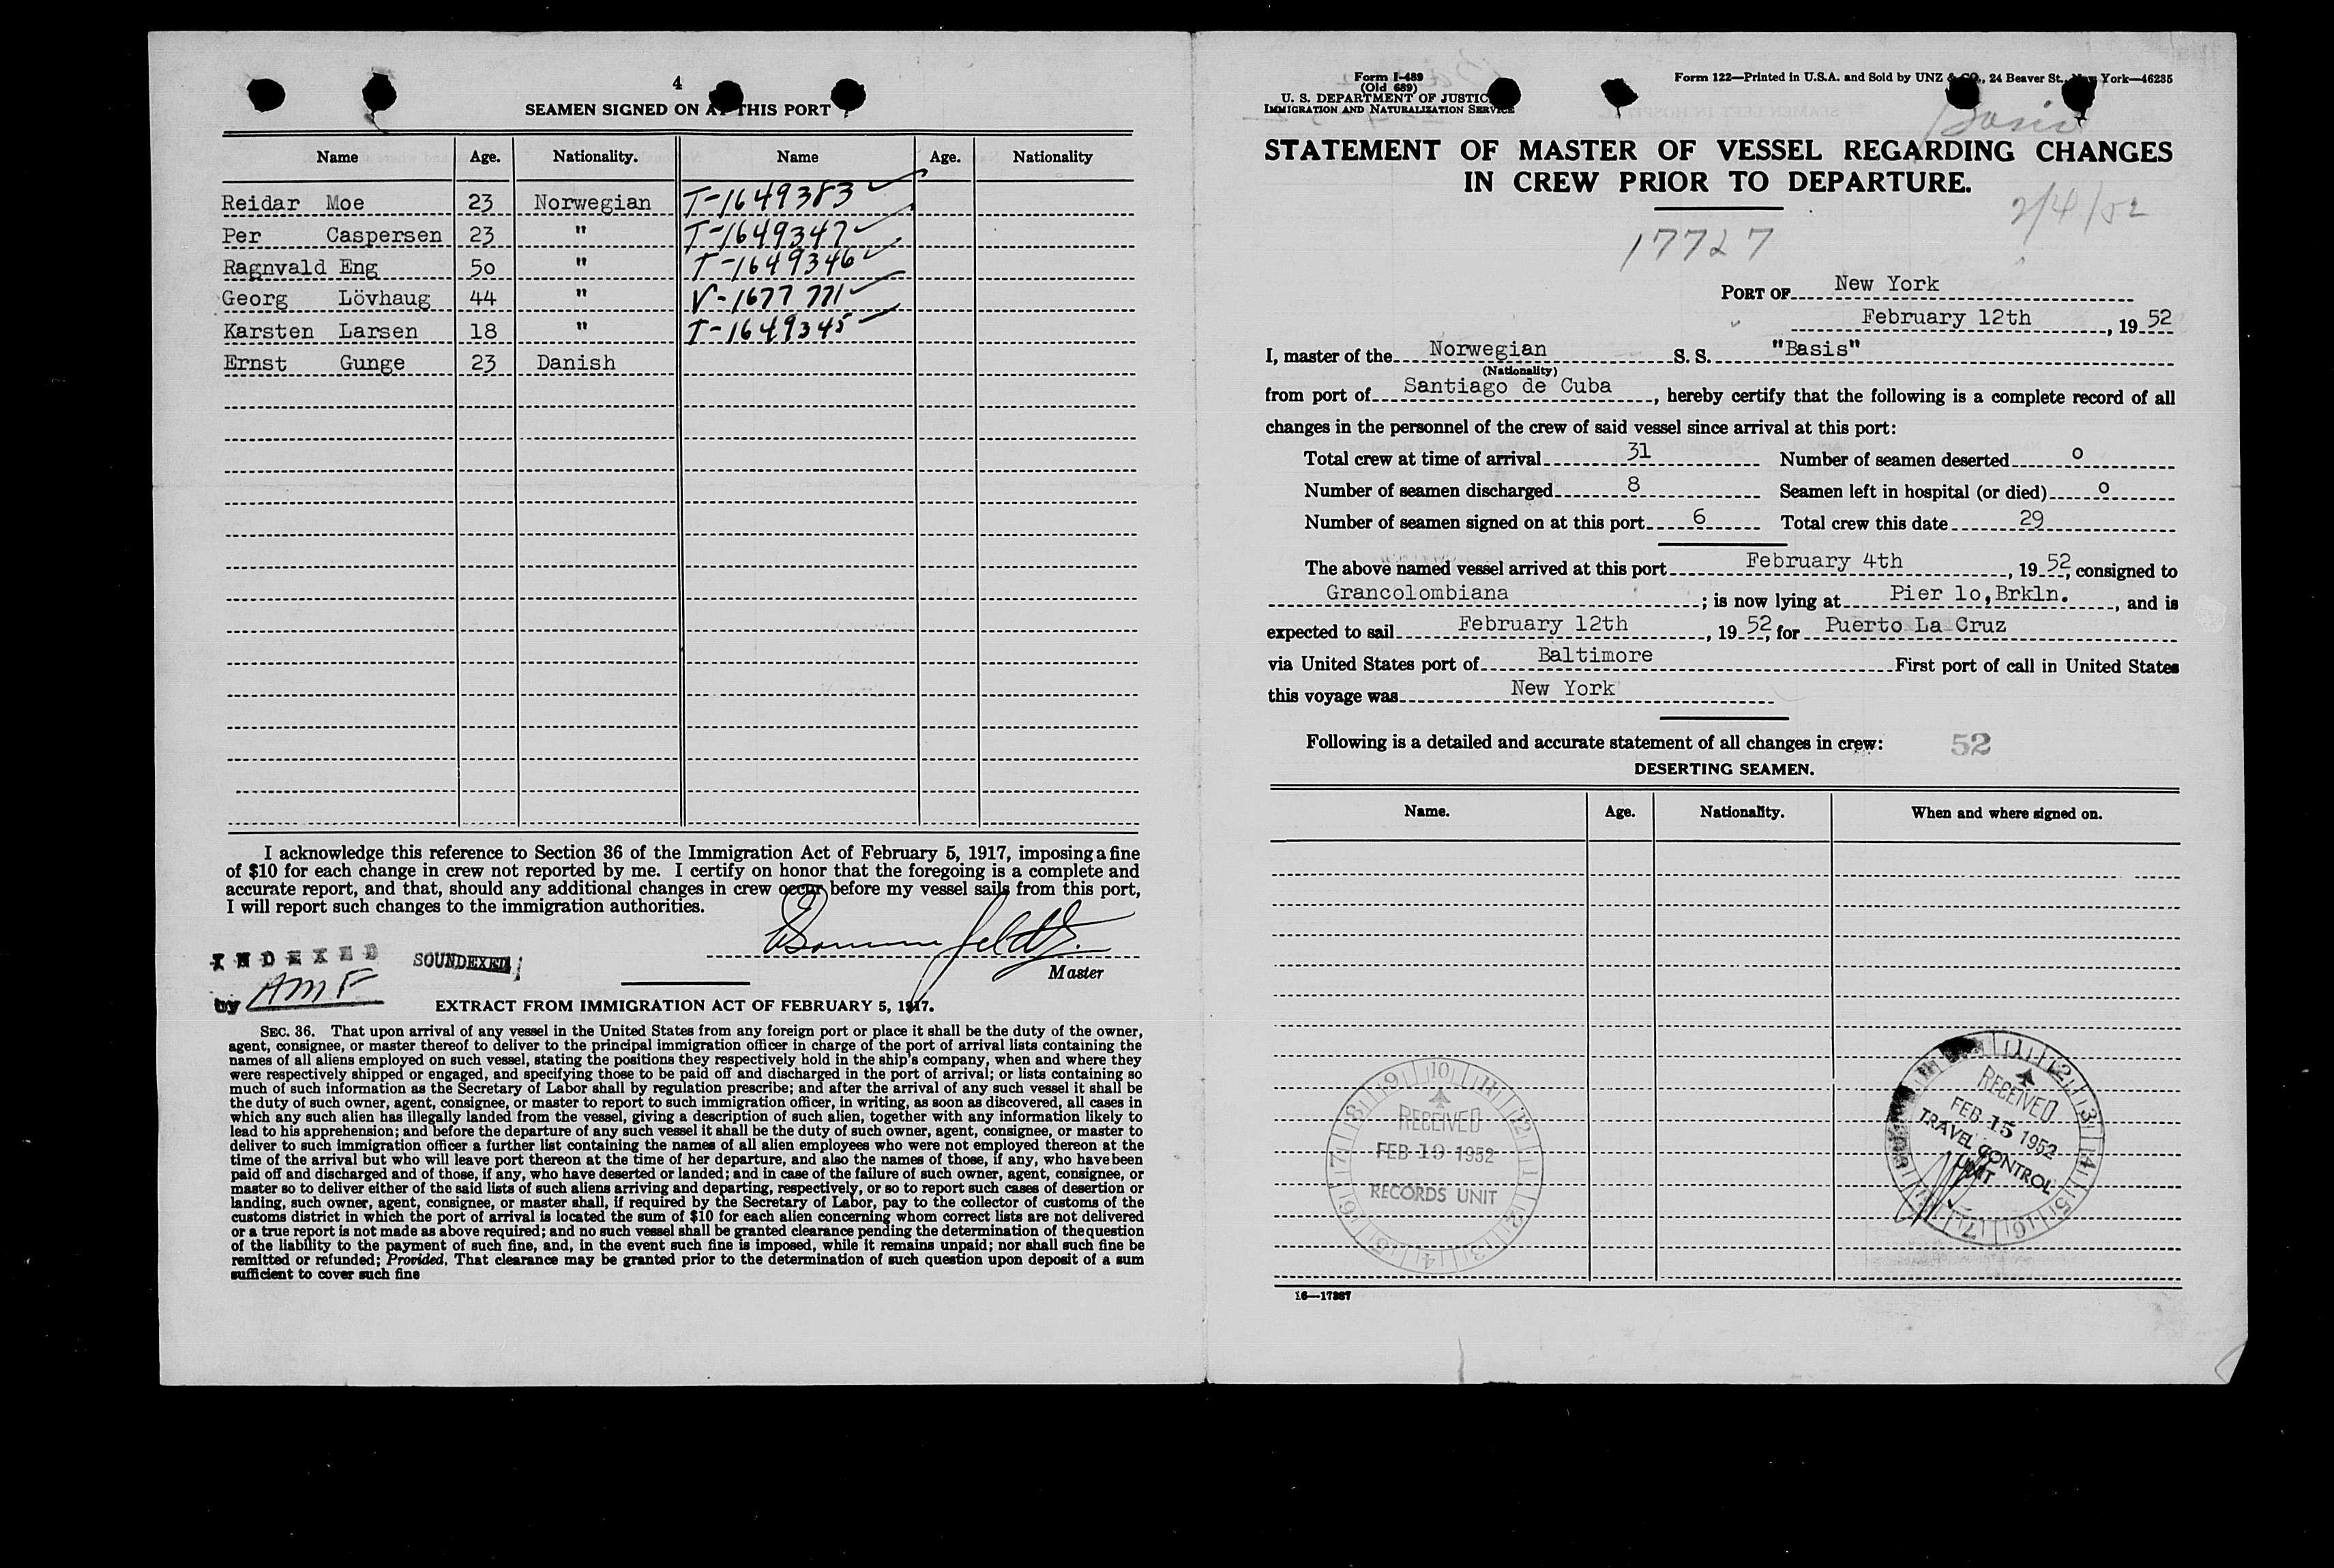 4
SEAMEN SIGNED ON AT THIS PORT
Name Age. Nationality. Name Age. Nationality
Reidar Moe 23 Norwegian T-1649383 ✓
Per Caspersen 23 " T-1649347 ✓
Ragnvald Eng 5o " T-1649346 ✓
Georg Lövhaug 44 " V-1677771 ✓
Karsten Larsen 18 " T-1649345 ✓
Ernst Gunge 23 Danish
I acknowledge this reference to Section 36 of the Immigration Act of February 5, 1917, imposing a fine
of $10 for each change in crew not reported by me. I certify on honor that the foregoing is a complete and
accurate report, and that, should any additional changes in crew occur before my vessel sails from this port,
I will report such changes to the immigration authorities.
INDEXED SOUNDEXED
Master
by AMF
EXTRACT FROM IMMIGRATION ACT OF FEBRUARY 5, 1917.
SEC. 36. That upon arrival of any vessel in the United States from any foreign port or place it shall be the duty of the owner,
agent, consignee, or master thereof to deliver to the principal immigration officer in charge of the port of arrival lists containing the
names of all aliens employed on such vessel, stating the positions they respectively hold in the ship's company, when and where they
were respectively shipped or engaged, and specifying those to be paid off and discharged in the port of arrival; or lists containing so
much of such information as the Secretary of Labor shall by regulation prescribe; and after the arrival of any such vessel it shall be
the duty of such owner, agent, consignee, or master to report to such immigration officer, in writing, as soon as discovered, all cases in
which any such alien has illegally landed from the vessel, giving a description of such alien, together with any information likely to
lead to his apprehension; and before the departure of any such vessel it shall be the duty of such owner, agent, consignee, or master to
deliver to such immigration officer a further list containing the names of all alien employees who were not employed thereon at the
time of the arrival but who will leave port thereon at the time of her departure, and also the names of those, if any, who have been
paid off and discharged and of those, if any, who have deserted or landed; and in case of the failure of such owner, agent, consignee, or
master so to deliver either of the said lists of such aliens arriving and departing, respectively, or so to report such cases of desertion or
landing, such owner, agent, consignee, or master shall, if required by the Secretary of Labor, pay to the collector of customs of the
customs district in which the port of arrival is located the sum of $10 for each alien concerning whom correct lists are not delivered
or a true report is not made as above required; and no such vessel shall be granted clearance pending the determination of the question
of the liability to the payment of such fine, and, in the event such fine is imposed, while it remains unpaid; nor shall such fine be
remitted or refunded; Provided, That clearance may be granted prior to the determination of such question upon deposit of a sum
sufficient to cover such fine
Form I-489
(Old 689)
U. S. DEPARTMENT OF JUSTICE
IMMIGRATION AND NATURALIZATION SERVICE
Form 122—Printed in U.S.A. and Sold by UNZ & CO., 24 Beaver St., New York—46235
Basis
STATEMENT OF MASTER OF VESSEL REGARDING CHANGES
IN CREW PRIOR TO DEPARTURE.
2/4/52
17727
PORT OF New York
February 12th, 1952
I, master of the Norwegian S. S. "Basis"
(Nationality)
from port of Santiago de Cuba, hereby certify that the following is a complete record of all
changes in the personnel of the crew of said vessel since arrival at this port:
Total crew at time of arrival 31 Number of seamen deserted o
Number of seamen discharged 8 Seamen left in hospital (or died) o
Number of seamen signed on at this port 6 Total crew this date 29
The above named vessel arrived at this port February 4th, 1952, consigned to
Grancolombiana; is now lying at Pier 1o,Brkln., and is
expected to sail February 12th, 1952, for Puerto La Cruz
via United States port of Baltimore First port of call in United States
this voyage was New York
Following is a detailed and accurate statement of all changes in crew: 52
DESERTING SEAMEN.
Name. Age. Nationality. When and where signed on.
RECEIVED
FEB 19 1952
RECORDS UNIT
RECEIVED
FEB 15 1952
TRAVEL CONTROL
UNIT
16—17387